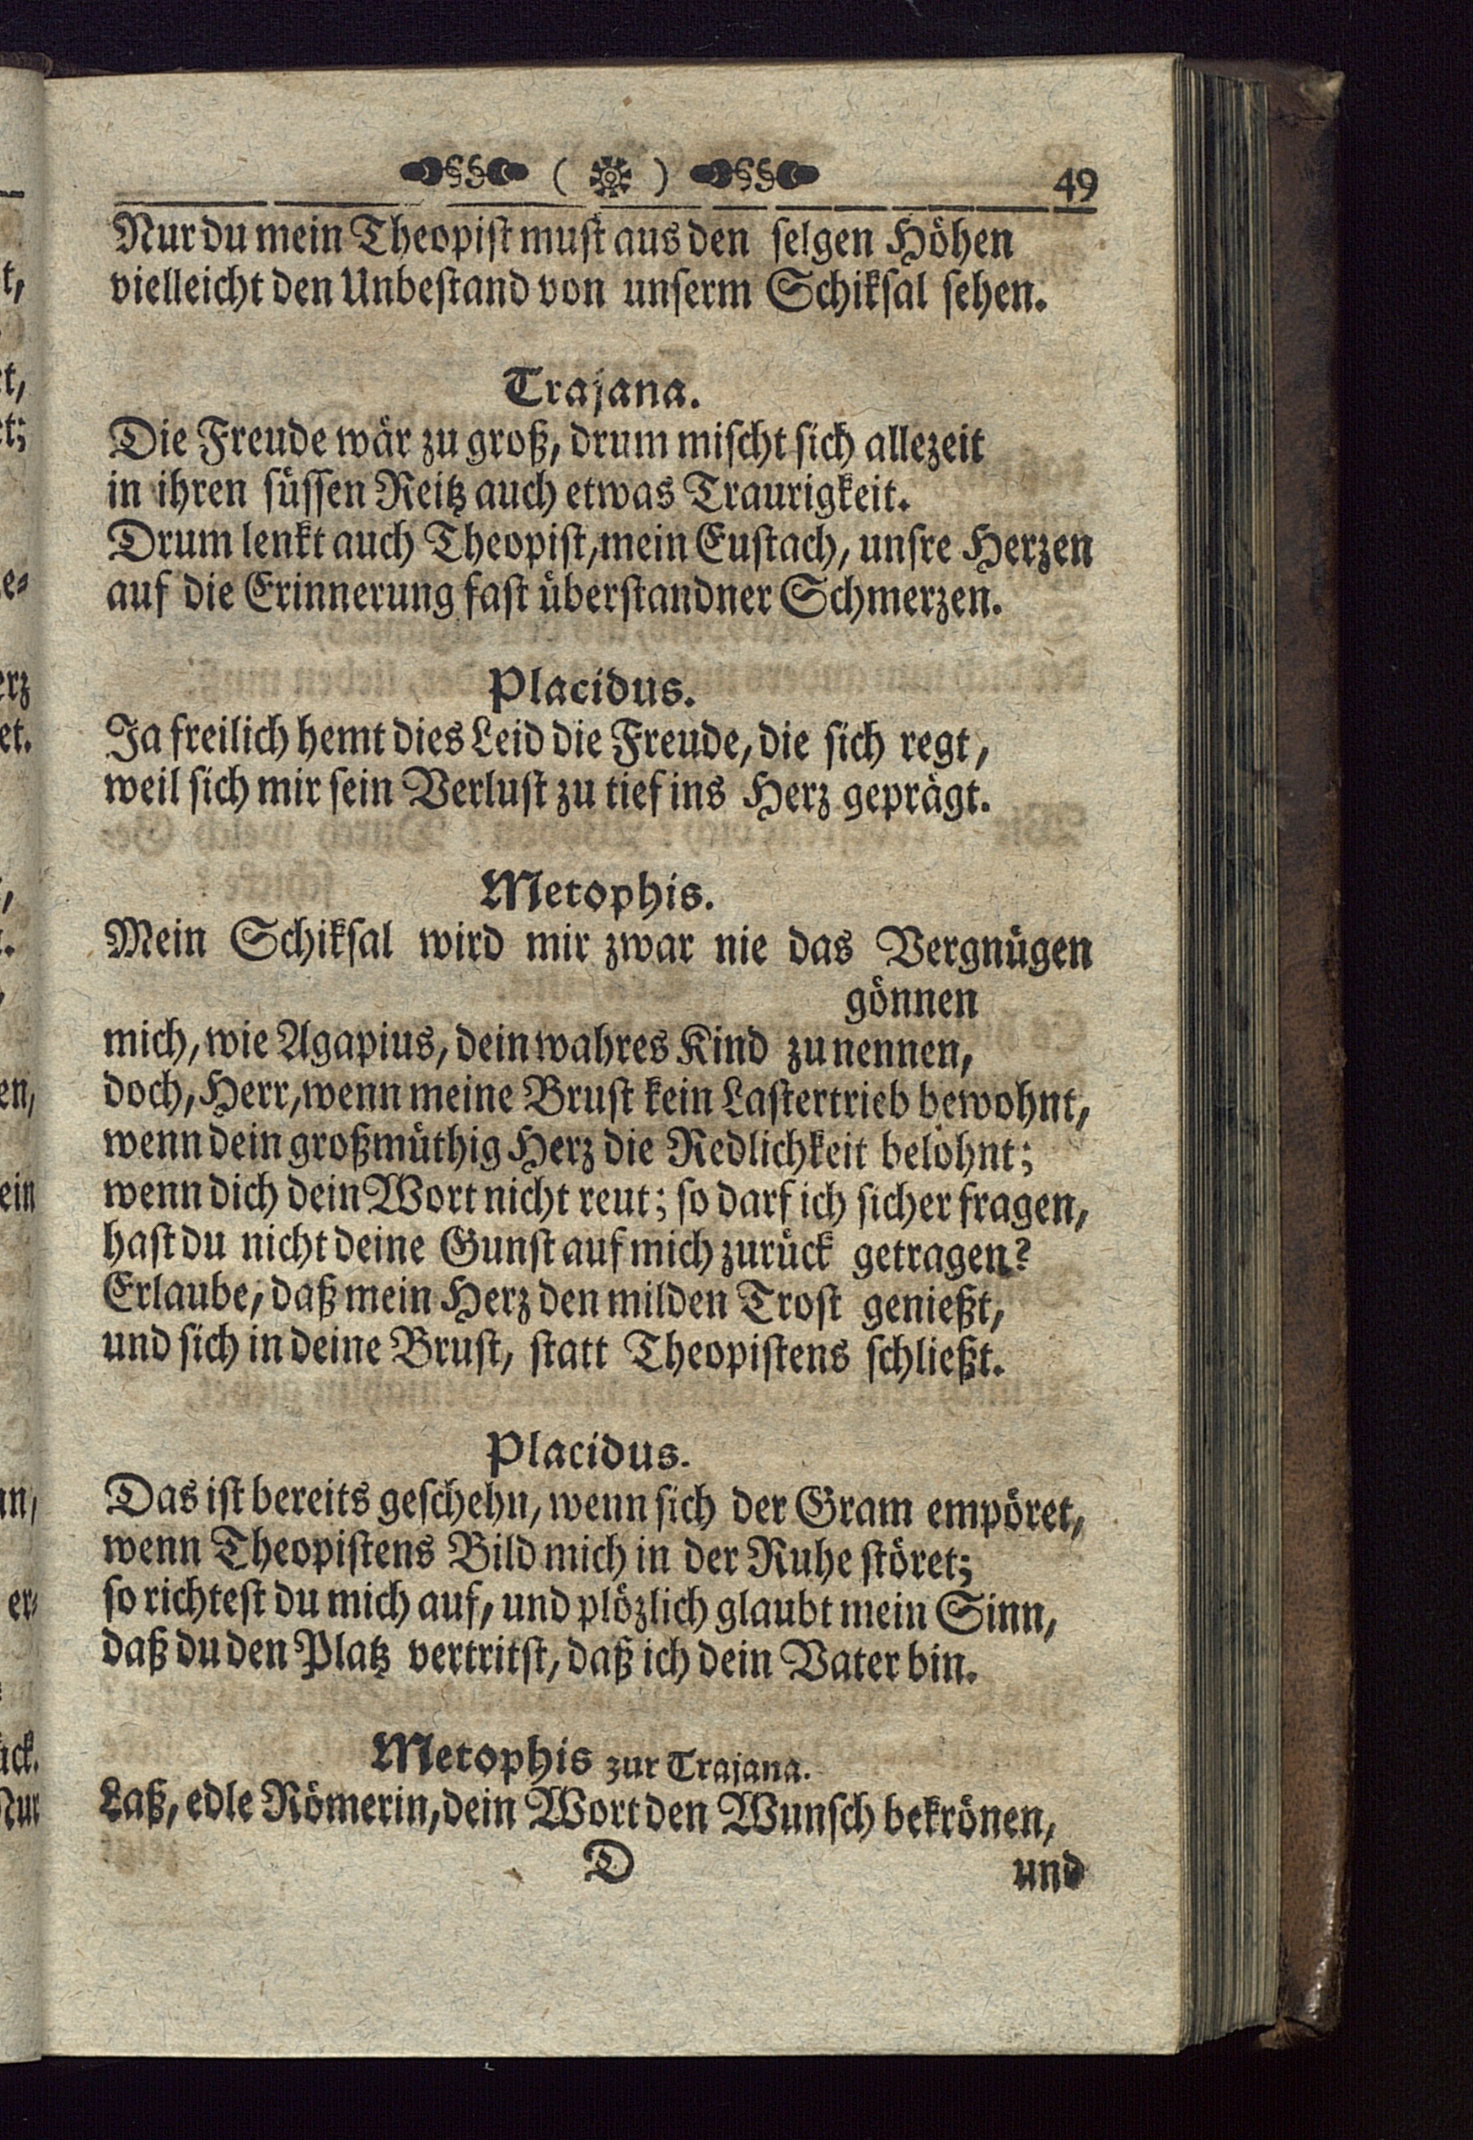 ( ) 49
Nur du mein Theopist must aus den selgen Höhen
vielleicht den Unbestand von unserm Schiksal sehen.
Trajana.
Die Freude wär zu groß, drum mischt sich allezeit
in ihren süssen Reitz auch etwas Traurigkeit.
Drum lenkt auch Theopist, mein Eustach, unsre Herzen
auf die Erinnerung fast überstandner Schmerzen.
Placidus.
Ja freilich hemt dies Leid die Freude, die sich regt,
weil sich mir sein Verlust zu tief ins Herz geprägt.
Metophis.
Mein Schiksal wird mir zwar nie das Vergnügen
gönnen
mich, wie Agapius, dein wahres Kind zu nennen,
doch, Herr, wenn meine Brust kein Lastertrieb bewohnt,
wenn dein großmüthig Herz die Redlichkeit belohnt;
wenn dich dein Wort nicht reut; so darf ich sicher fragen,
hast du nicht deine Gunst auf mich zurück getragen?
Erlaube, daß mein Herz den milden Trost genießt,
und sich in deine Brust, statt Theopistens schließt.
Placidus.
Das ist bereits geschehn, wenn sich der Gram empöret,
wenn Theopistens Bild mich in der Ruhe störet;
so richtest du mich auf, und plözlich glaubt mein Sinn,
daß du den Platz vertritst, daß ich dein Vater bin.
Metophis zur Trajana.
Laß, edle Römerin, dein Wort den Wunsch bekrönen,
D und